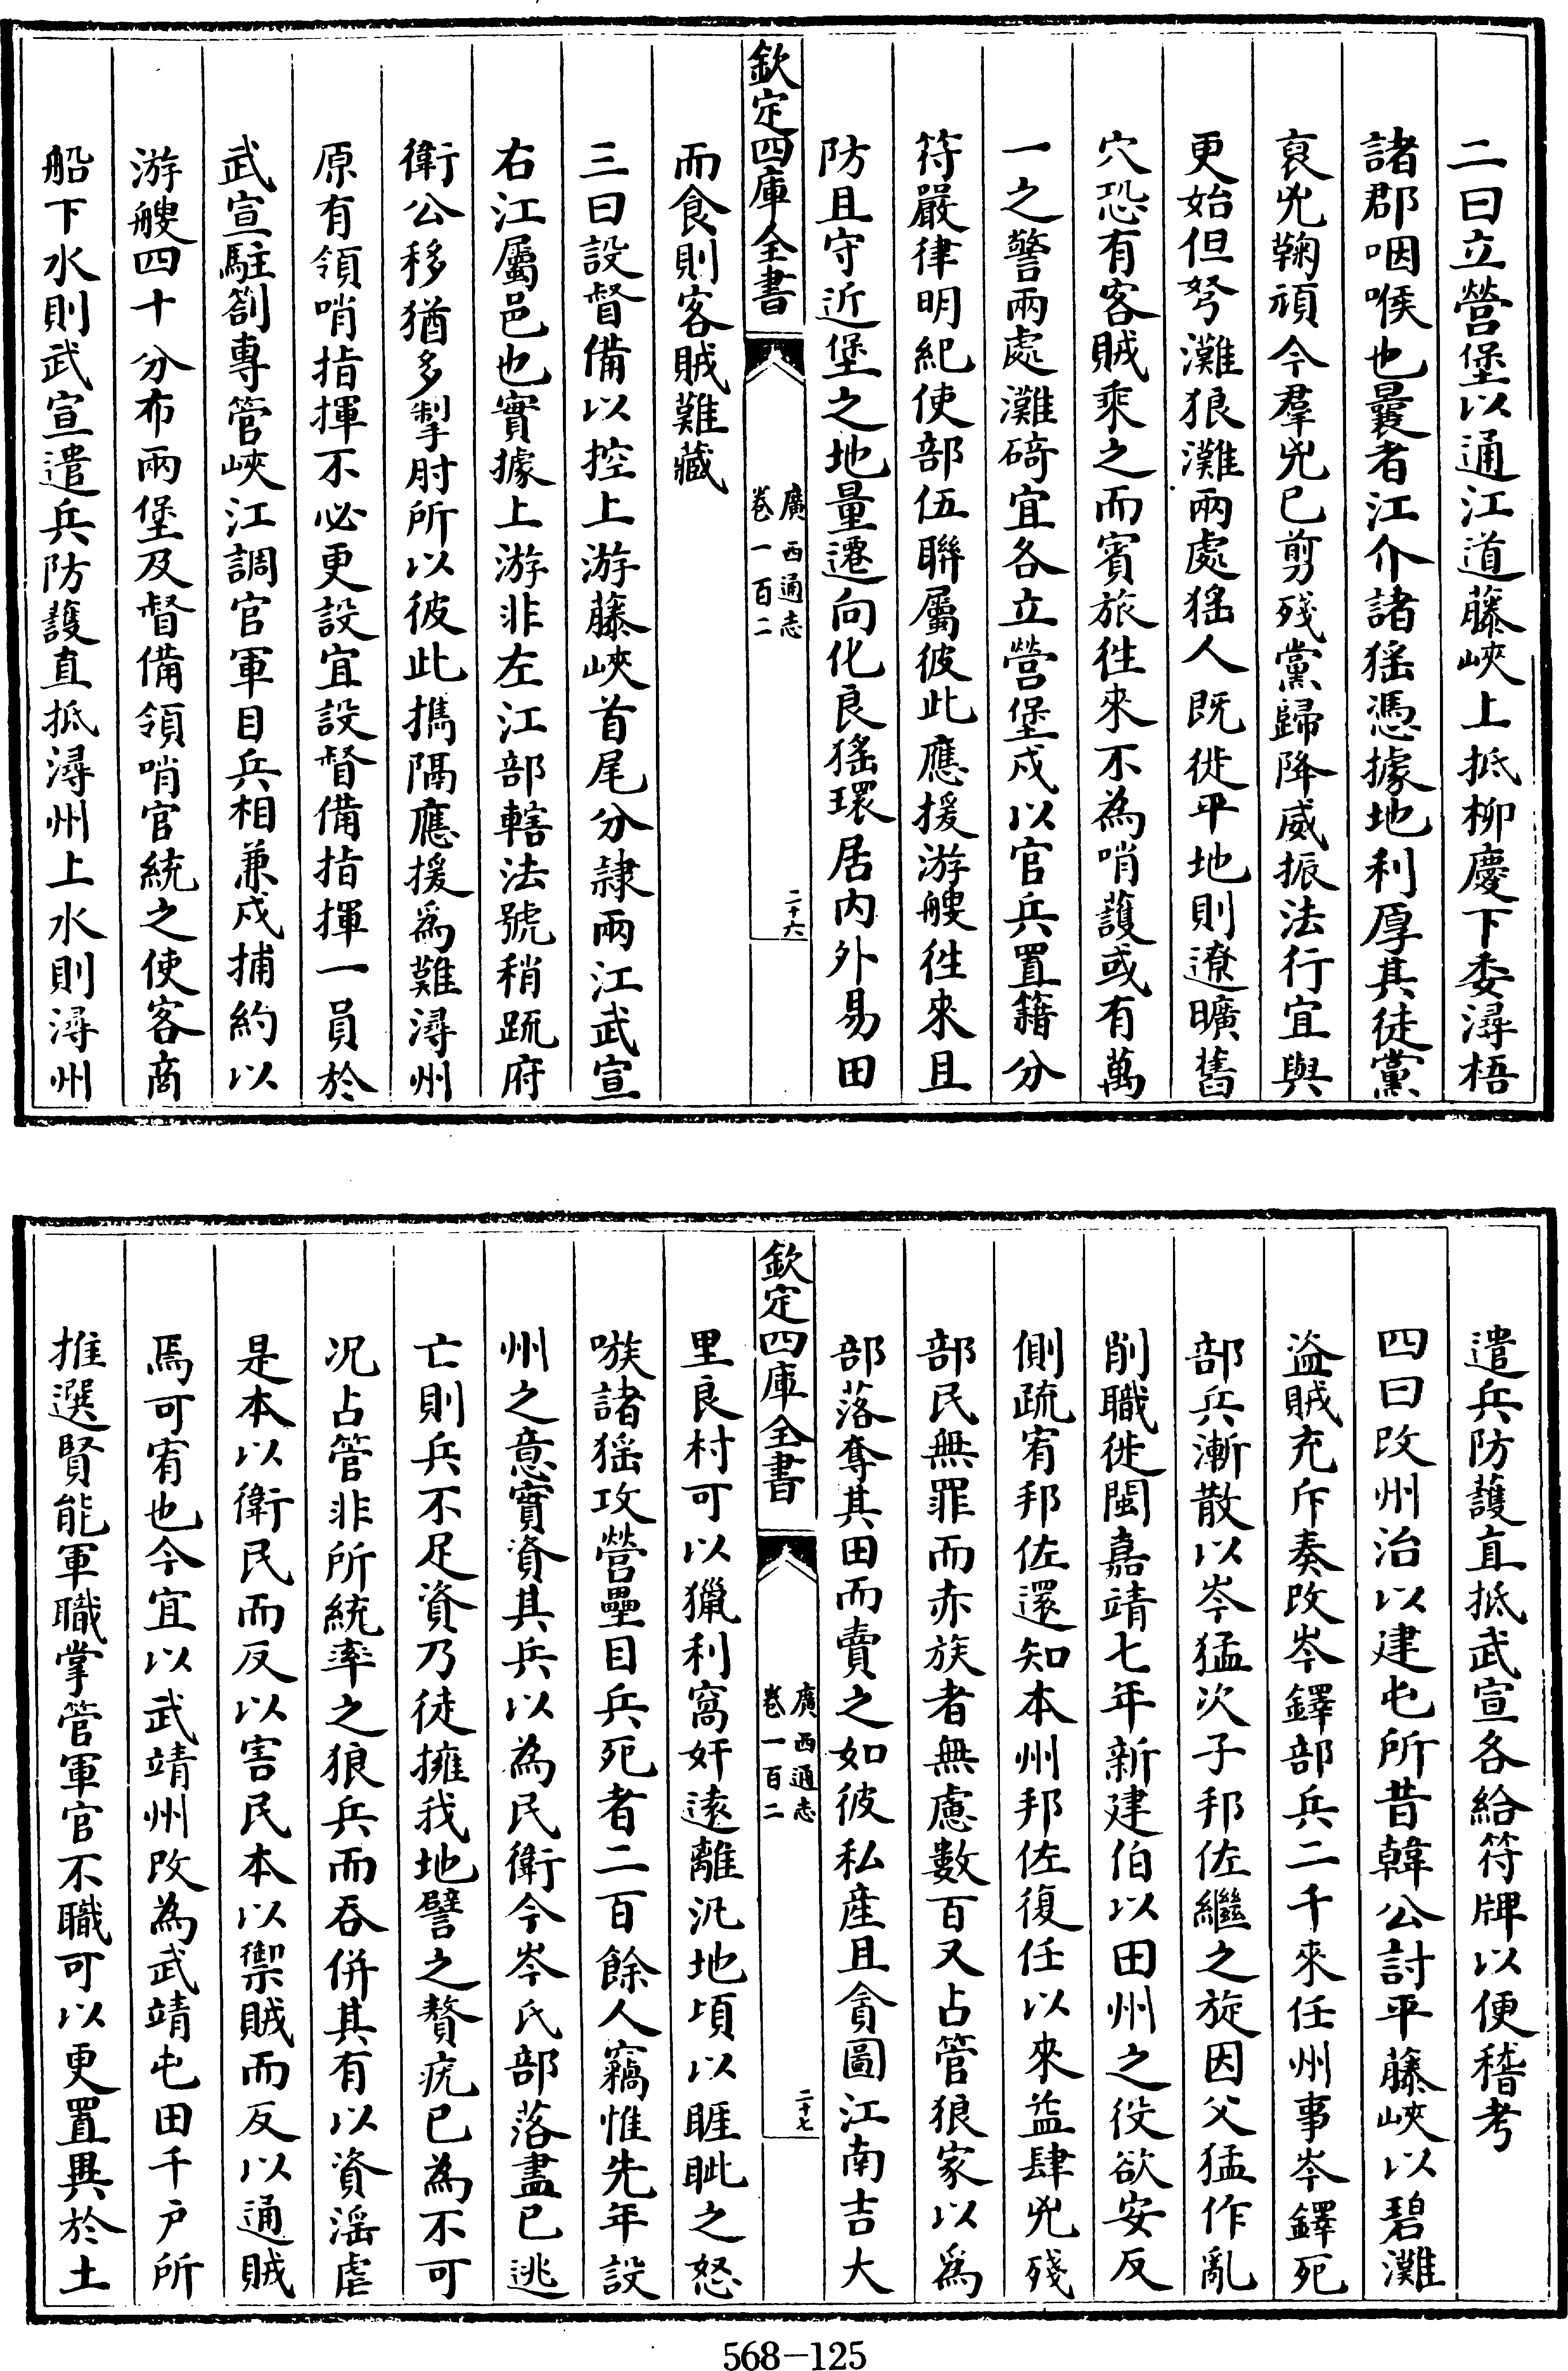 二曰立營堡以通江道藤峽上抵柳慶下委潯梧
諸郡咽喉也曩者江介諸猺憑據地利厚其徒黨
裒兇鞠頑今羣兇已剪殘黨歸降威振法行宜與
更始但弩灘狼灘兩處猺人既徙平地則遼曠舊
穴恐有客賊乘之而賓旅徃來不為哨護或有萬
一之警兩處灘碕宜各立營堡戍以官兵置籍分
符嚴律明紀使部伍聯屬彼此應援游艘徃來且
防且守近堡之地量遷向化良猺環居内外易田
欽定四庫全書
廣西通志
卷一百二
二十六
而食則客賊難藏
三曰設督備以控上游藤峽首尾分隷兩江武宣
右江屬邑也實據上游非左江部轄法號稍疏府
衛公移猶多掣肘所以彼此携隔應援為難潯州
原有領哨指揮不必更設宜設督備指揮一員於
武宣駐劄專管峽江調官軍目兵相兼戍捕約以
游艘四十分布兩堡及督備領哨官統之使客商
船下水則武宣遣兵防護直抵潯州上水則潯州
遣兵防護直抵武宣各給符牌以便稽考
四曰改州治以建屯所昔韓公討平藤峽以碧灘
盜賊充斥奏改岑鐸部兵二千來任州事岑鐸死
部兵漸散以岑猛次子邦佐繼之旋因父猛作亂
削職徙閩嘉靖七年新建伯以田州之役欲安反
側疏宥邦佐還知本州邦佐復任以來益肆兇殘
部民無罪而赤族者無慮數百又占管狼家以為
部落奪其田而賣之如彼私産且貪圖江南吉大
欽定四庫全書
廣西通志
卷一百二
二十七
里良村可以獵利窩奸逺離汛地頃以睚眦之怒
嗾諸猺攻營壘目兵死者二百餘人竊惟先年設
州之意實資其兵以為民衛今岑氏部落盡已逃
亡則兵不足資乃徒擁我地譬之贅疣已為不可
况占管非所統率之狼兵而吞併其有以資滛虐
是本以衛民而反以害民本以禦賊而反以通賊
焉可宥也今宜以武靖州改為武靖屯田千户所
推選賢能軍職掌管軍官不職可以更置異於土
568-125